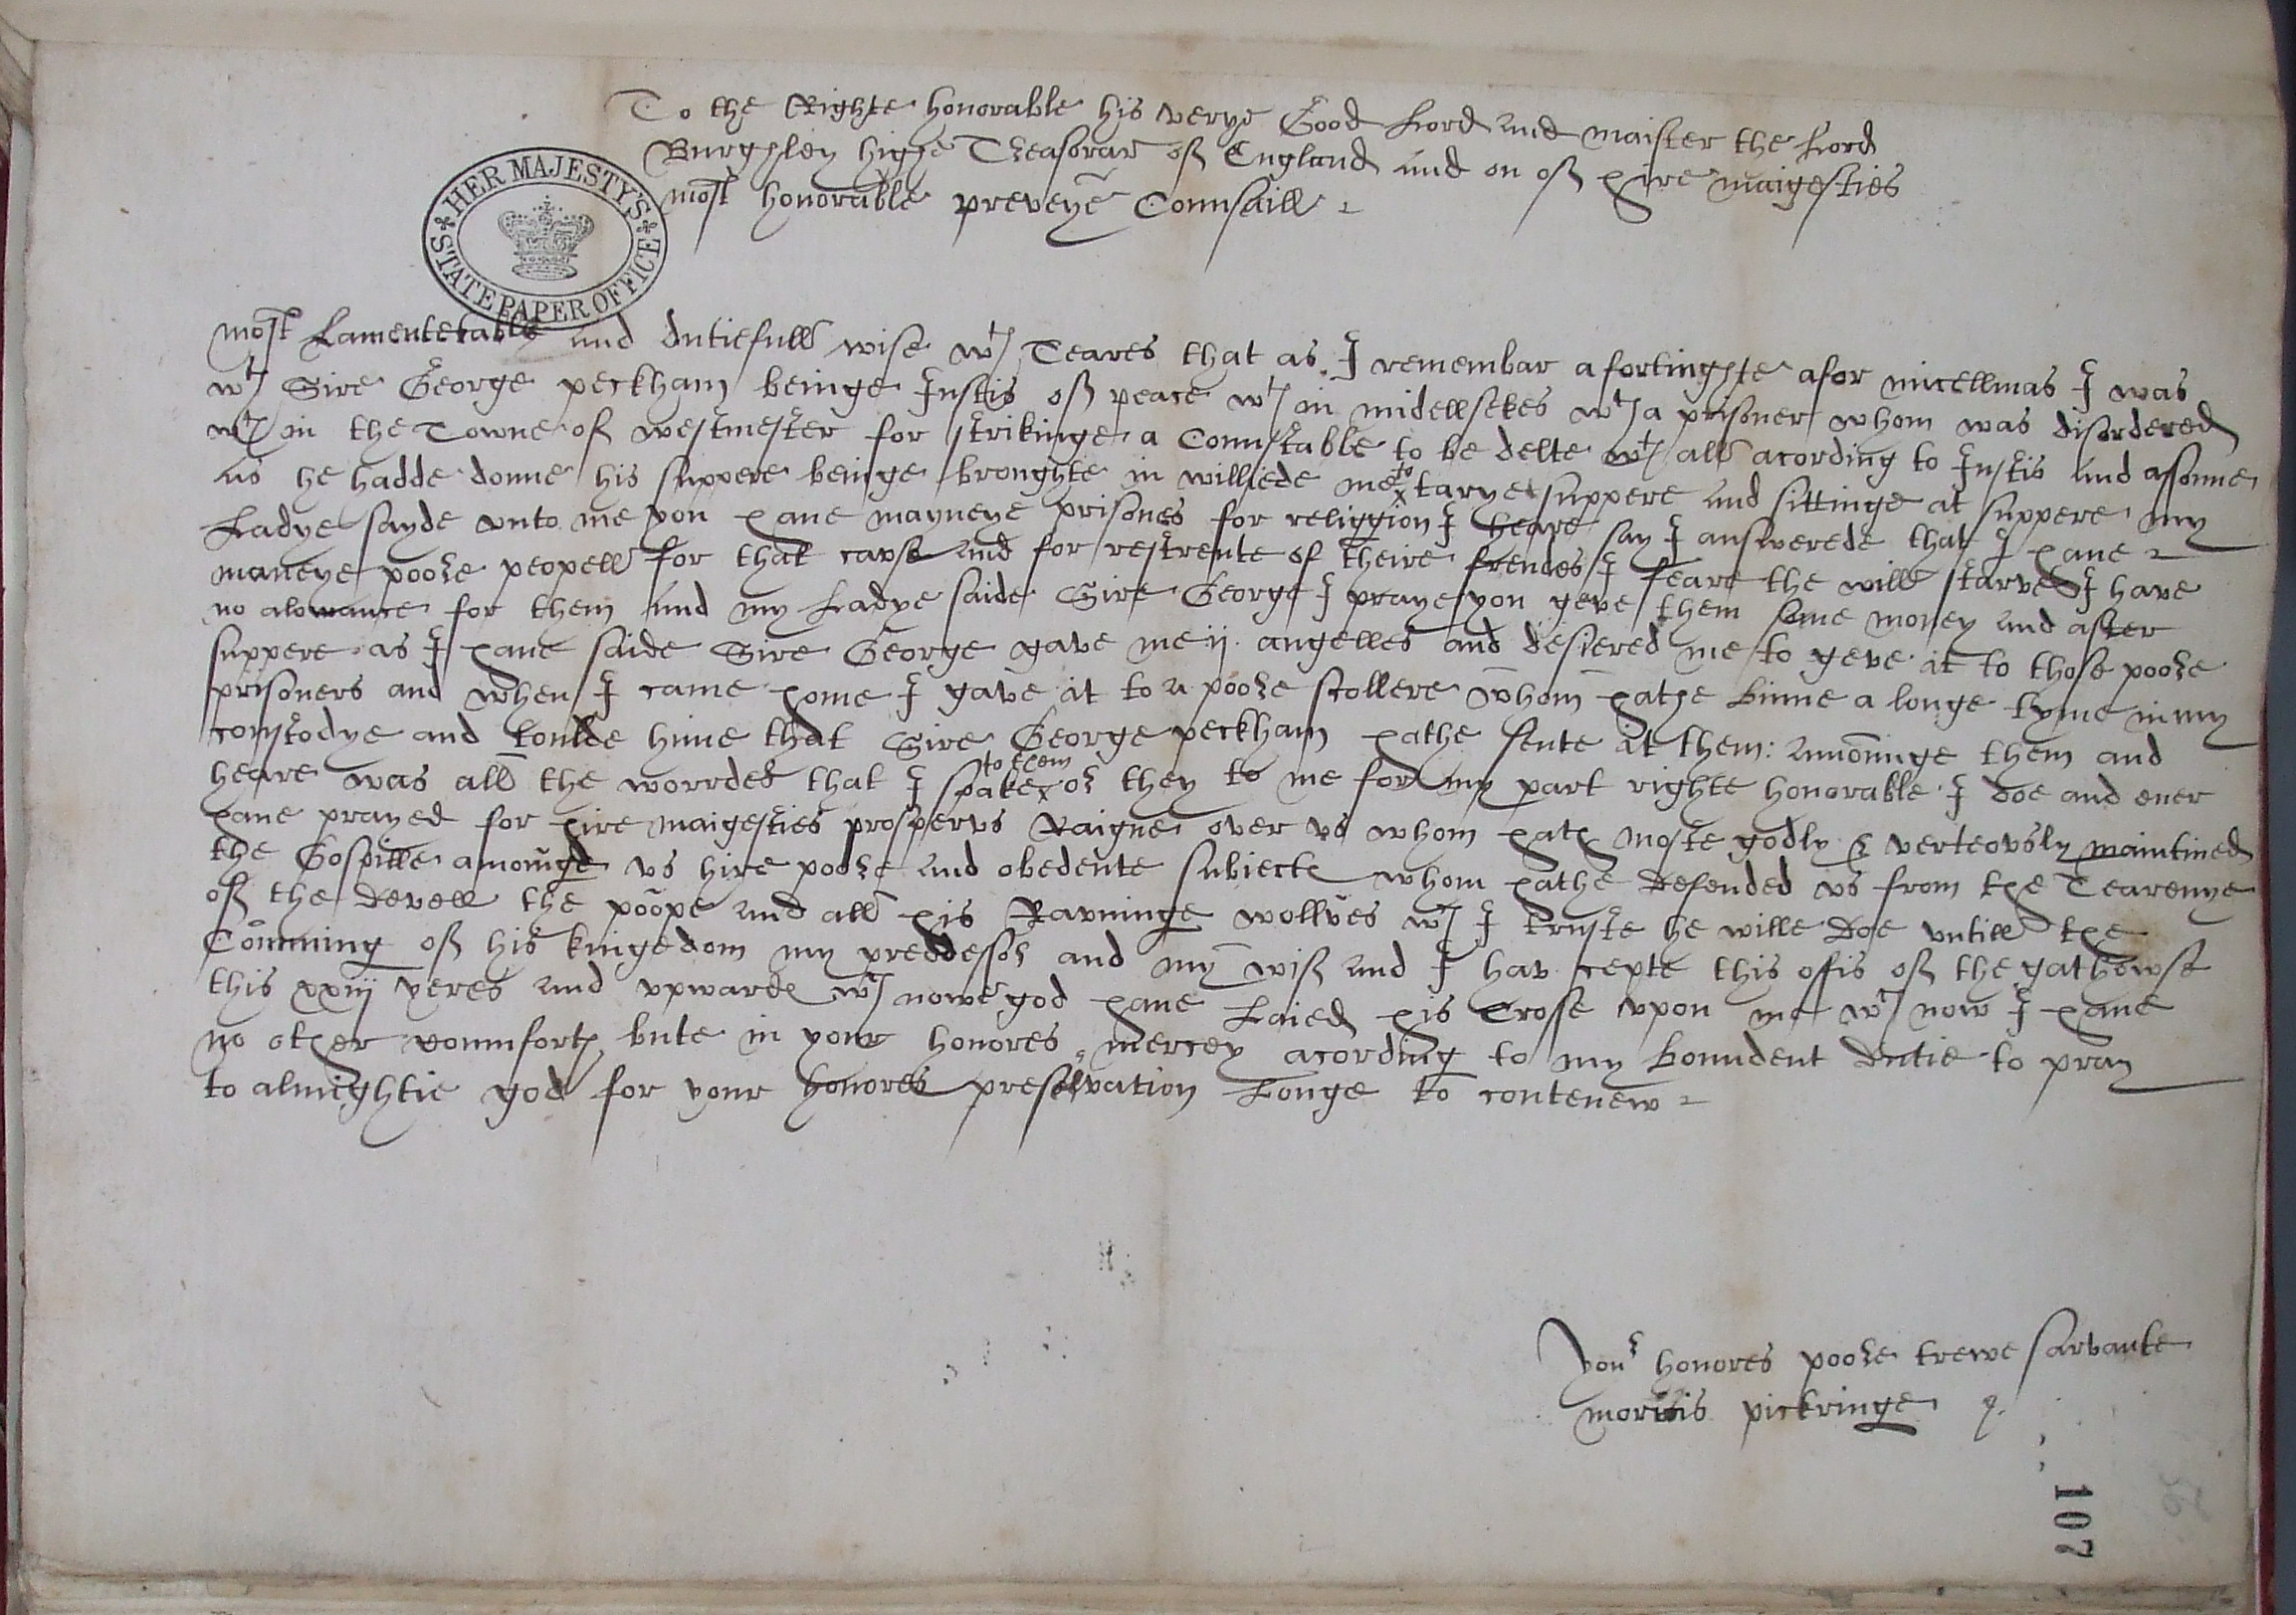 To the Righte honorable his verye Good Lord and maister the Lord
Burghley highe Treasorar of England and on of hire maigesties
most honorable preveye Counsaill
HER MAJESTYS STATE PAPER OFFICE
most Lamentetable and dutiefull wise wth Teares that as I remembar a fortinghte afor micellmas I was
wth Sire George peckham beinge Justis of peace wth in midellsekes wth a prisoner whom was disordered
wth in the Towne of westmester for strikinge a Counstable to be delte wth all acording to Justis and assonne
as he hadde donne his suppere beinge broughte in williede me to tarye suppere and sittinge at suppere my
Ladye sayde vnto me you haue mayneye prisones for religgion I heare say I answerede that I haue
maneye poore peopell for that cavse and for restrente of theire frendes I feare the will starve I have
no alowance for them and my Ladye saide Sire George I praye you geve them some money and after
suppere as I haue saide Sire George gave me ij angelles and desiered me to geve it to those poore
prisoners and when I came home I gave it to a poore scollere whom hathe binne a longe tyme in my
constodye and toulde hime that Sire George peckham hathe sente it them: amonnge them and
heare was all the worrdes that I spake to them or they to me for my part righte honorable I doe and euer
haue prayed for hire maigesties prospervs Raigne over vs whom hath moste godly & verteovsly maintined
the Gospille amounge vs hire poore and obedente subiectes whom hathe defended vs from the Tearenye
of the devell the poope and all his Ravninge wollves wch I truste he wille doe vntill the
Comming of his kingedom my preddessor and my wif and I hav cepte this offis of the gathewse
this xxiij yeres and vpwardes wch nowe god haue Laied his Crosse vpon me wch now I haue
no other coumforth bute in your honores mercey acording to my boundent dutie to pray
to almightie god for your honores preservation Longe to contenew
Your honores poore trewe sarvante
morris pickringe
107